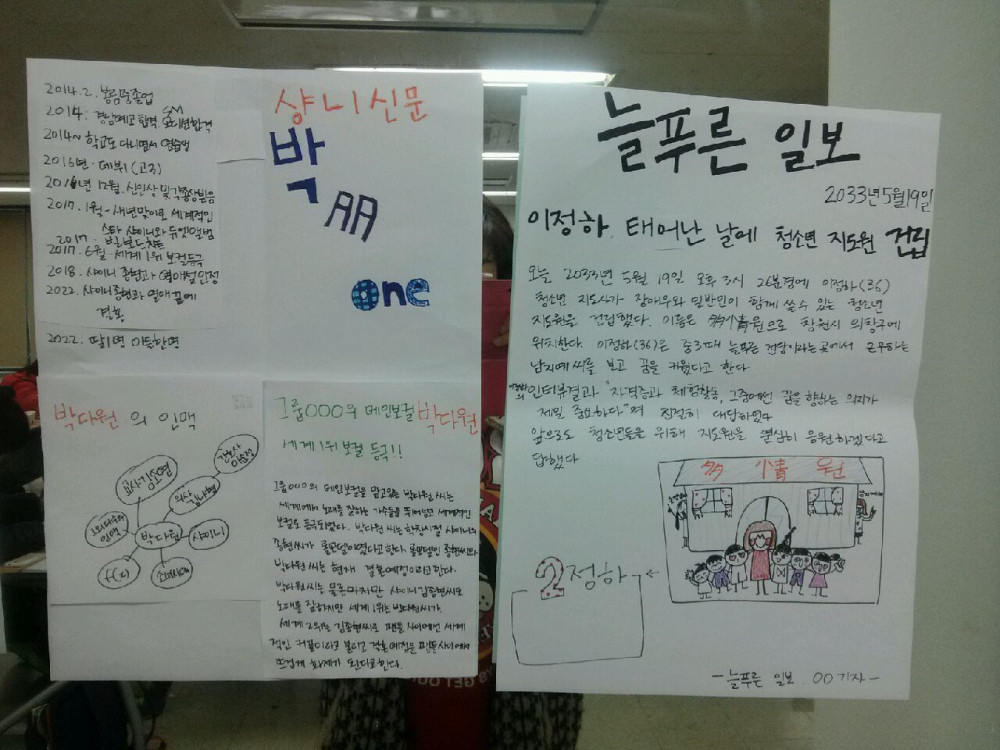 2014. 2. 졸업
2014. 경남예고 합격, SM 오디션합격
2014~ 학교도 다니면서 연습생
2016년. 데뷔 (고3)
12월. 신인상 및
2017. 1월 - 새년맞이로 세계적인
스타 샤이니와 듀엣앨범
2017.
2017. 6월. 세계 1위 보컬등극
2018. 샤이니 종현과 열애설 인정
2022. 샤이니종현과 열애 끝에
결혼
2022. 딸1명 아들한명
샹니신문
박
AA
one
박다원의 인맥
박다원
샤이니
f(x)
그룹OOO의 메인보컬 박다원
세계 1위 보컬 등극!!
그룹OOO의 메인보컬을 맡고있는 박다원 씨는
세계에서 노래를 잘하는 가수들을 뛰어넘고 세계적인
보컬로 등극되었다. 박다원 씨는 학창시절 샤이니의
종현씨가 롤모델이였다고 한다. 롤모델인 종현씨와
박다원 씨는 현재 결혼예정이라고한다.
박다원씨는 샤이니 김종현씨도
노래를 잘하지만 세계 1위는 박다원씨가
세계 2위는 김종현씨로 팬들 사이에선 세계
적인 커플이라고 불리고 결혼예정은 팬들 사이에서
뜨겁게 화제가 된다고한다.
늘푸른 일보
2033년 5월 19일
이정하. 태어난 날에 청소년 지도원 건립
오늘 2033년 5월 19일 오후 3시 26분경에 이정하(36)
청소년 지도사가 장애우와 일반인이 함께 쓸수 있는 청소년
지도원을 건립했다. 이름은 원으로 창원시 의창구에
위치한다. 이정하(36)은 중3때 늘푸른 전당이라는곳에서 근무하는
남지예 씨를 보고 꿈을 키웠다고 한다
이정하의 인터뷰결과 "자격증과 체험활동, 그중에선 꿈을 향하는 의지가
제일 중요하다"며 친절히 대답하였다
앞으로도 청소년들을 위해 지도원을 열심히 응원하겠다고
답했다
多 情 원
2정하
- 늘푸른 일보. OO기자 -